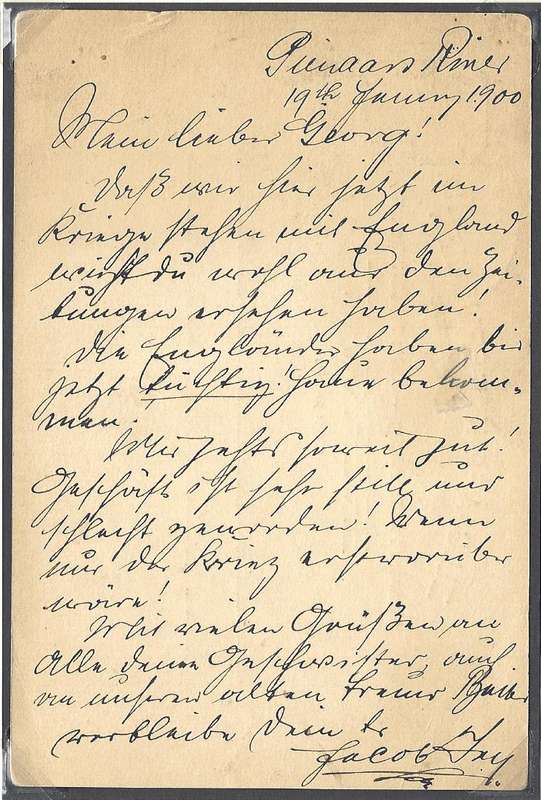 Pienaars River
19th January 1900
Mein lieber Georg!
Daß wir hier jetzt im
Kriege stehen mit England
wirst du wohl aus den Zei-
tungen ersehen haben!
Die Engländer haben bis
jetzt tüchtig! Haue bekom-
men.
Mir gehts soweit gut!
Geschäft ist sehr still und
schlecht geworden! Wenn
nur der Krieg erst vorüber
wäre!
Mit vielen Grüßen an
Alle deine Geschwister, auch
an unseren alten
verbleibe Dein
Jacob